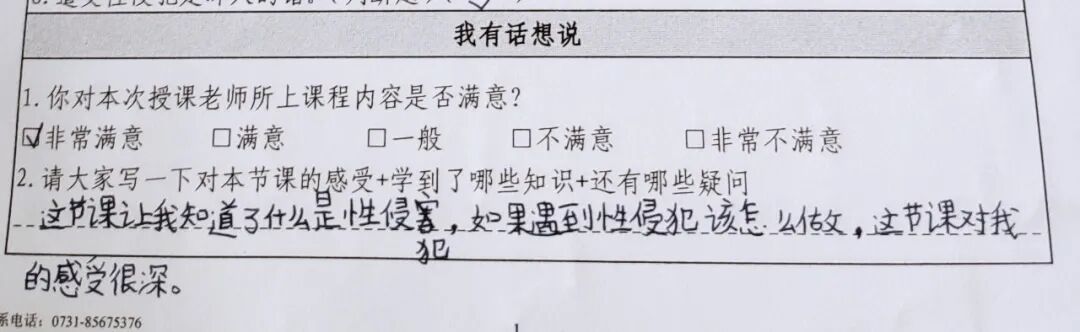 我有话想说
1. 你对本次授课老师所上课程内容是否满意？
☑非常满意 □满意 □一般 □不满意 □非常不满意
2. 请大家写一下对本节课的感受+学到了哪些知识+还有哪些疑问
这节课让我知道了什么是性侵害，如果遇到性侵犯该怎么做，这节课对我
犯
的感受很深。
系电话：0731-85675376
1